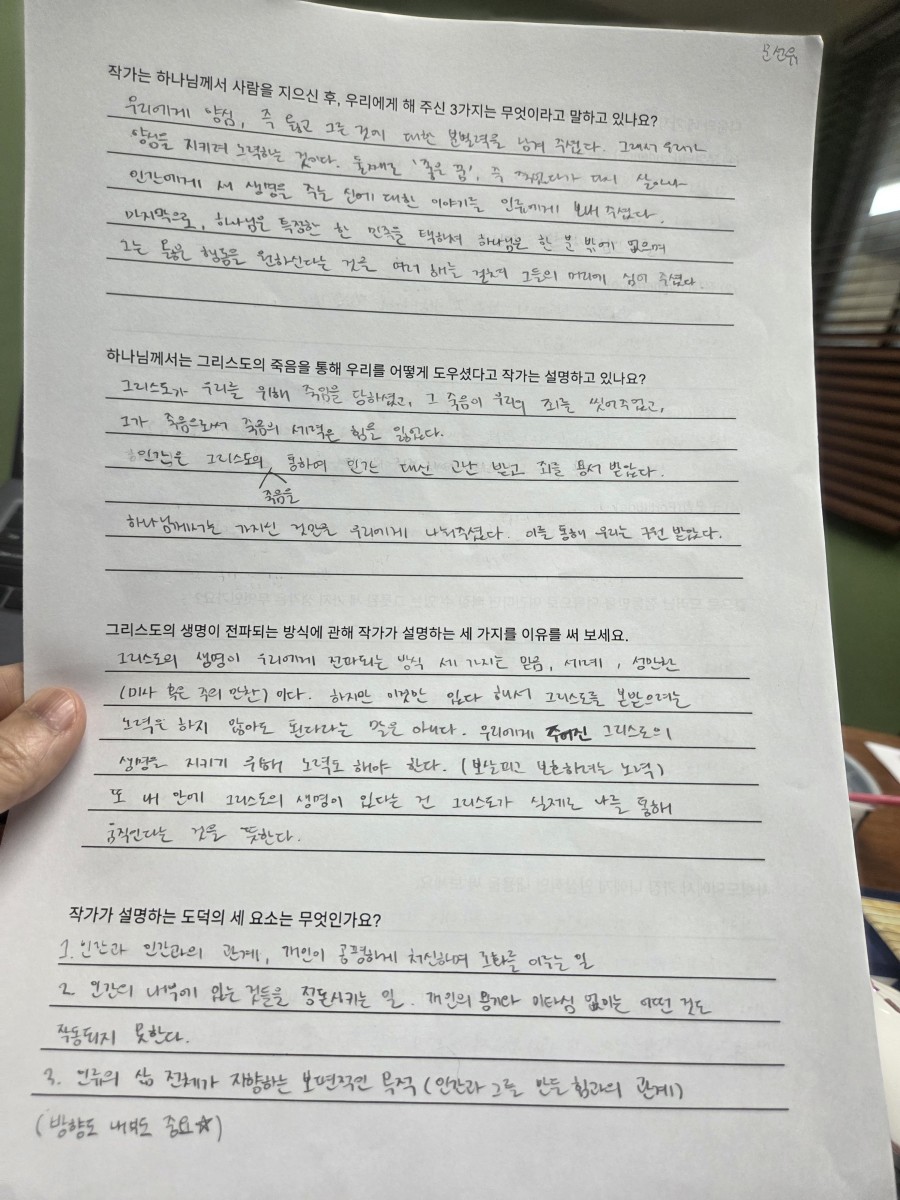 문선유
작가는 하나님께서 사람을 지으신 후, 우리에게 해 주신 3가지는 무엇이라고 말하고 있나요?
우리에게 양심, 즉 옳고 그른 것에 대한 분별력을 남겨 주셨다. 그래서 우리가
양심을 지키려 노력하는 것이다. 둘째로 '좋은 꿈', 즉 죽었다가 다시 살아나
인간에게 새 생명을 주는 신에 대한 이야기를 인류에게 보내 주셨다.
마지막으로, 하나님은 특정한 한 민족을 택하셔 하나님은 한 분 밖에 없으며
그는 옳은 행동을 원하신다는 것을 여러 해를 걸쳐 그들의 머리에 심어 주셨다
하나님께서는 그리스도의 죽음을 통해 우리를 어떻게 도우셨다고 작가는 설명하고 있나요?
그리스도가 우리를 위해 죽임을 당하셨고, 그 죽음이 우리의 죄를 씻어주었고,
그가 죽음으로써 죽음의 세력은 힘을 잃었다.
인간은 그리스도의 통하여 인간 대신 고난 받고 죄를 용서 받았다.
죽음을
하나님께서는 가지신 것만을 우리에게 나눠주셨다. 이를 통해 우리는 구원 받았다.
그리스도의 생명이 전파되는 방식에 관해 작가가 설명하는 세 가지를 이유를 써 보세요.
그리스도의 생명이 우리에게 전파되는 방식 세 가지는 믿음, 세례, 성만찬
(미사 혹은 주의 만찬) 이다. 하지만 이것만 있다 해서 그리스도를 본받으려는
노력을 하지 않아도 된다라는 말은 아니다. 우리에게 주어진 그리스도의
생명을 지키기 위해 노력도 해야 한다. (보살피고 보호하려는 노력)
또 내 안에 그리스도의 생명이 있다는 건 그리스도가 실제로 나를 통해
움직인다는 것을 뜻한다.
작가가 설명하는 도덕의 세 요소는 무엇인가요?
1. 인간과 인간과의 관계, 개인이 공평하게 처신하며 조화를 이루는 일
2. 인간의 내부에 있는 것들을 정돈시키는 일. 개인의 용기와 이타심 없이는 어떤 것도
작동되지 못한다.
3. 인류의 삶 전체가 지향하는 보편적인 목적 (인간과 그를 만든 힘과의 관계)
(방향도 내부도 중요☆)